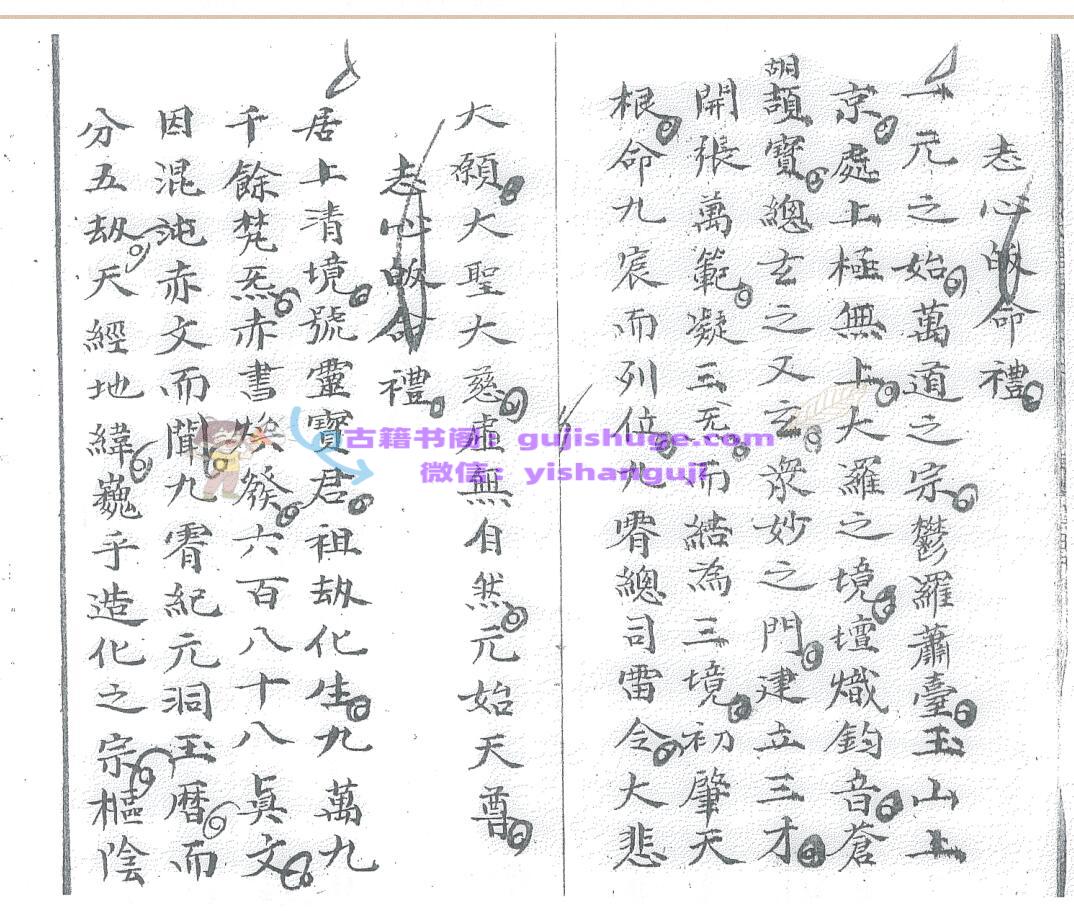 志心皈命禮
一炁之始萬道之宗鬱羅蕭臺玉山上
京處上極無上大羅之境壇熾鈞音蒼
胡
頡寶總玄之又玄眾妙之門建立三才
開張萬範凝三炁而結為三境初肇天
根命九宸而列位九霄總司雷令大悲
大願大聖大慈虛無自然元始天尊
志心皈命禮
居上清境號靈寶君祖劫化生九萬九
千餘梵炁赤書煥發六百八十八真文
因混沌赤文而開九霄紀元洞玉曆而
分五劫天經地緯巍乎造化之宗樞陰
古籍书阁：gujishuge.com
微信：yishanguji